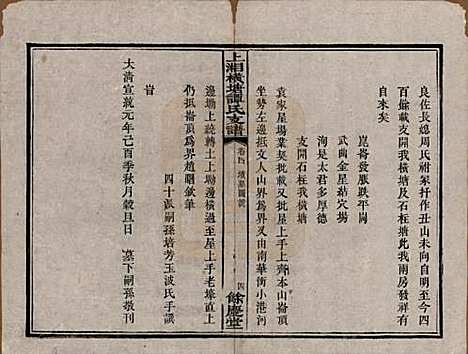 良佐長媳周氏祔冢扦作丑山未向自明至今四
百餘載支開我橫塘及石柱塘此我兩房發祥有
自來矣
崑崙發脈跌平岡
武曲金星結穴場
洵是太君多厚德
支開石柱我橫塘
袁家屋場業契批載又批屋上手上齊本山崙頂
坐勢左邊抵文人山界爲界又由南華街小港河
上湘橫塘譚氏支譜
卷四 墳墓圖說
四
餘慶堂
邊塝上統轉土上塝邊橫過至屋上手老壕直上
仍抵崙頂爲界趙曬欽筆
四十派嗣孫培芳玉波氏手識
旹
大淸宣統元年己酉季秋月穀旦日
墓下嗣孫敬刊